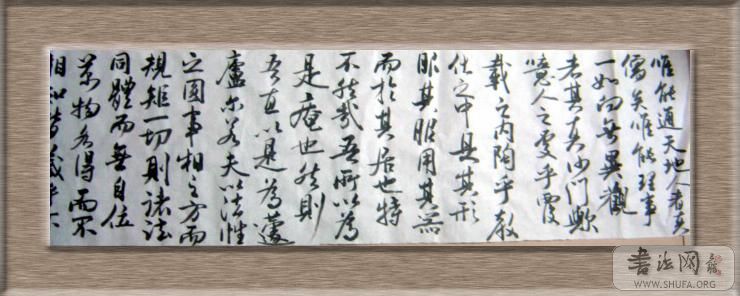 唯能通天地人者真
儒矣唯能理事
一如向無異觀
者其真沙門歟
噫人之處乎覆
載之內陶乎教
化之中具其形
服其服用其器
而於其居也特
不能哉吾所以為
是庵也然則
吾直以是為蘧
廬爾若夫以法性
之圓事相之方而
規矩一切則諸法
同體而無自位
萬物各得而不
相知皆藏乎
書法网
WWW.SHUFA.ORG